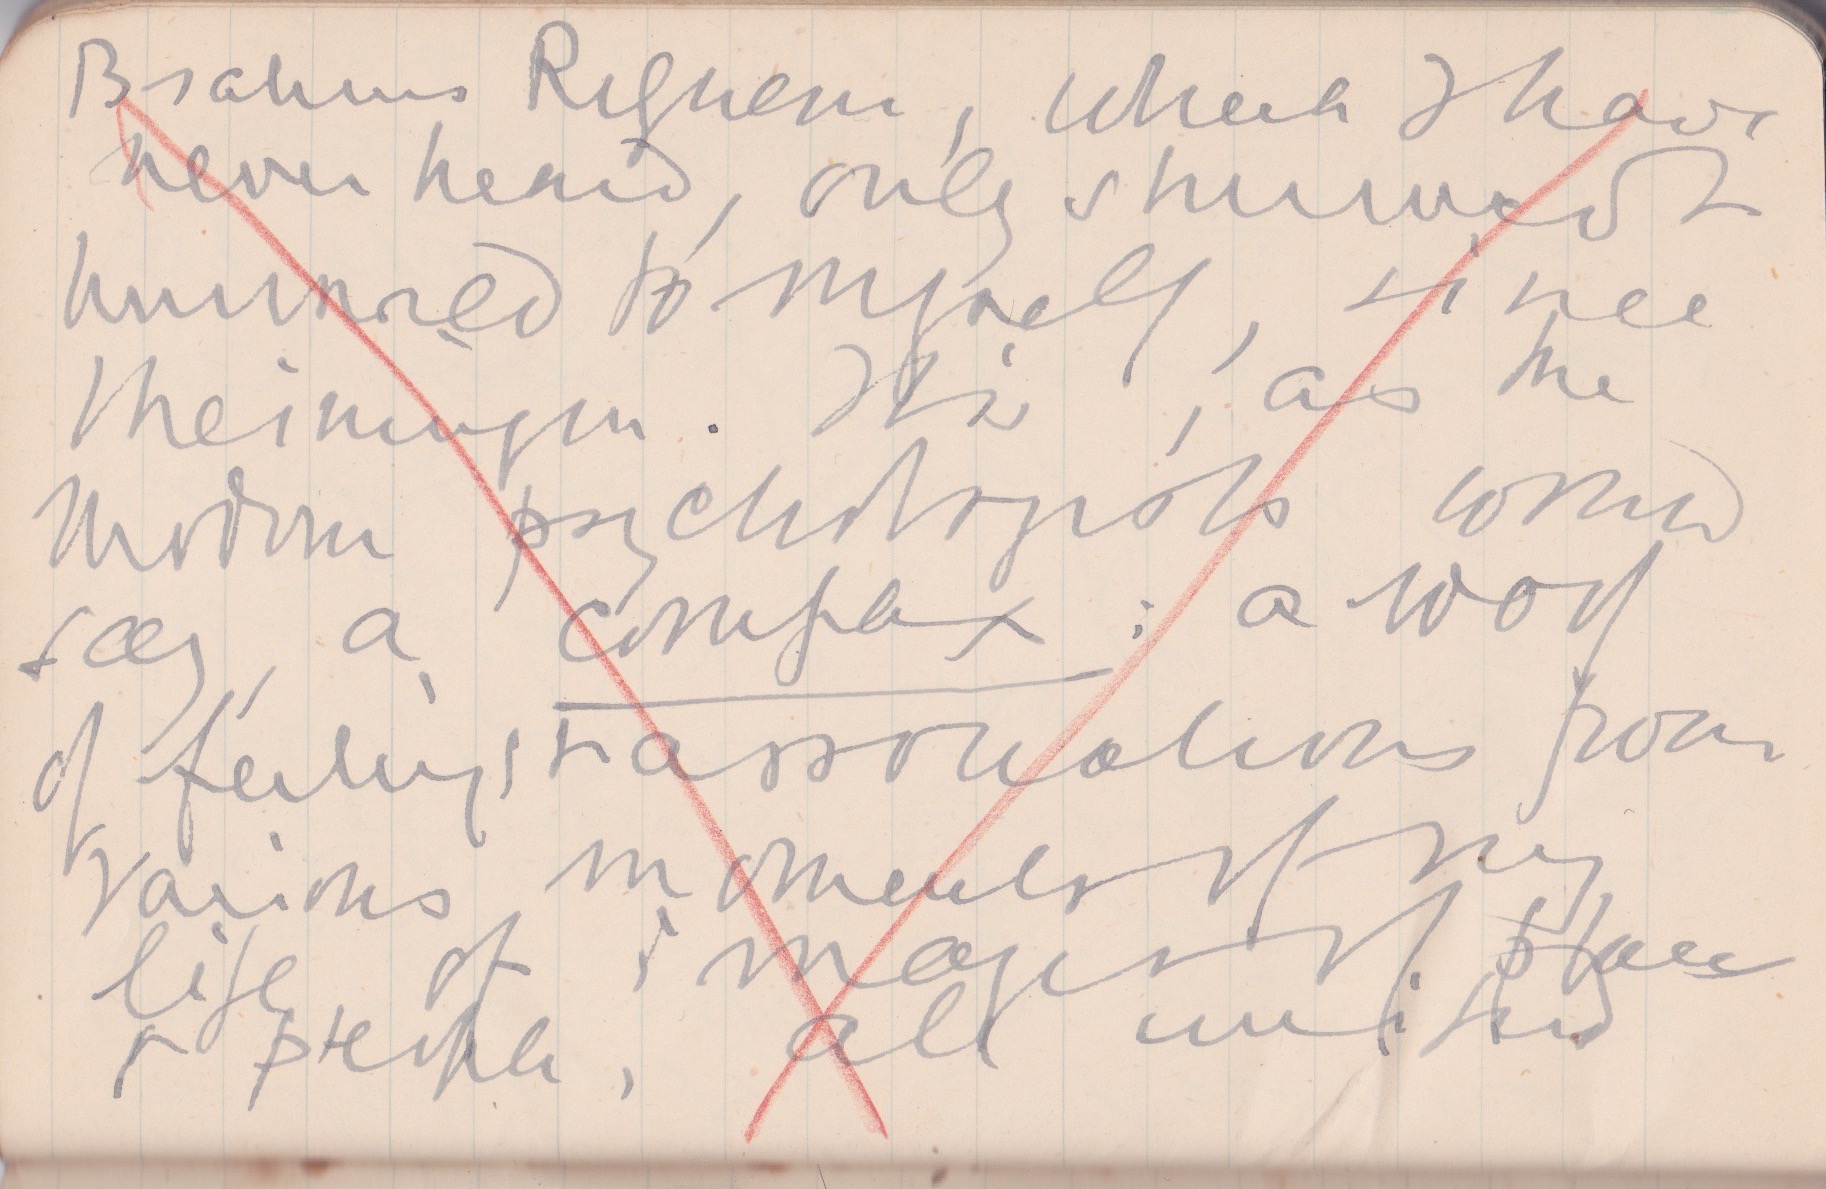 Brahms Requiem, which I have
never heard, only strummed &
hummed to myself, since
Meiningen. It is, as the
modern psychologists would
say, a complex: a woof
of feelings & associations from
various moments of my
life, of images of place
& people, all united